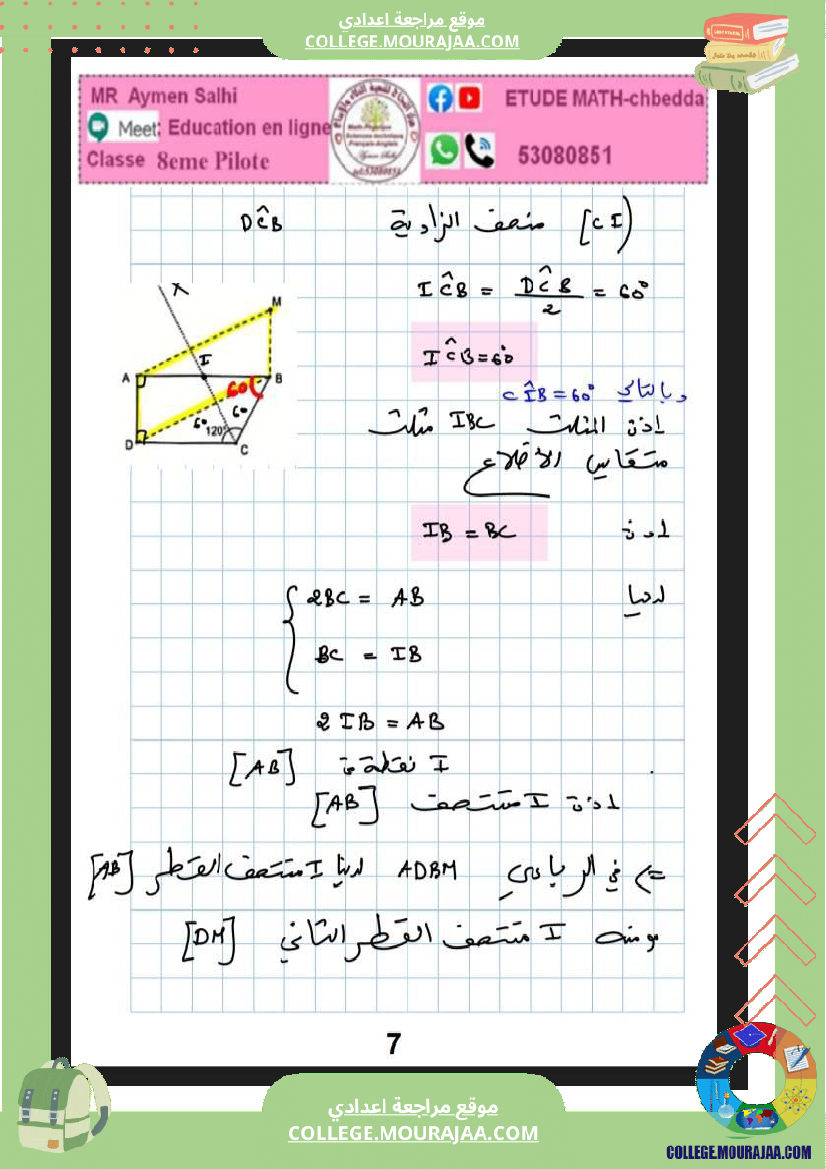 موقع مراجعة اعدادي
COLLEGE.MOURAJAA.COM
MR Aymen Salhi
Meet: Education en ligne
Classe 8eme Pilote
ETUDE MATH-chbedda
53080851
[CI) منصف الزاوية DĈB
IĈB = DĈB/2 = 60°
IĈB = 60°
وبالتالي CÎB = 60°
إذن المثلث IBC مثلث
متقايس الأضلاع
إذن IB = BC
لدينا
2BC = AB
BC = IB
2 IB = AB
I نقطة من [AB]
إذن I منتصف [AB]
X
M
I
A
B
60
60
60
120°
D
C
=> في الرباعي ADBM لدينا I منتصف القطر [AB]
ومنه I منتصف القطر الثاني [DM]
7
موقع مراجعة اعدادي
COLLEGE.MOURAJAA.COM
COLLEGE.MOURAJAA.COM